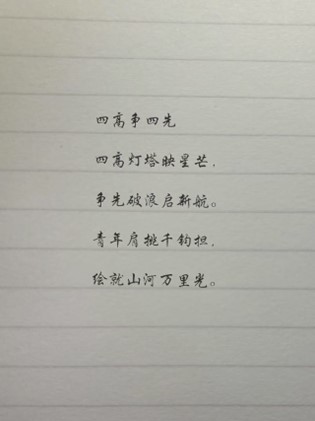 四高争四先
四高灯塔映星芒，
争先破浪启新航。
青年肩挑千钧担，
绘就山河万里光。